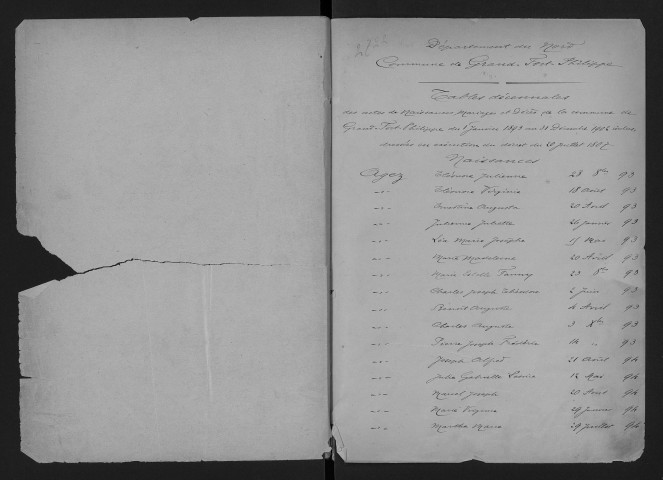 Département du Nord
Commune de Grand-Fort-Philippe
Tables décennales
des actes de Naissances, Mariages et Décès de la commune de
Grand-Fort-Philippe du 1 Janvier 1893 au 31 Décembre 1902
dressées en exécution du décret du 20 Juillet 1807
Naissances
Agez Julienne 23 8bre 93
-"- Virginie 18 Août 93
-"- Augusta 20 Avril 93
-"- Julienne Juliette 26 Janvier 93
-"- Léa Marie Josèphe 15 Mai 93
-"- Marie Madeleine 20 Août 93
-"- Marie Fanny 23 8bre 93
-"- Charles Joseph 2 Juin 93
-"- Benoit Auguste 4 Avril 93
-"- Charles Auguste 3 Xbre 93
-"- Pierre Joseph 14 " 93
-"- Joseph Alfred 21 Août 94
-"- Julia Gabrielle Louise 12 Mai 94
-"- Marcel Joseph 20 Août 94
-"- Marie Virginie 29 Janvier 94
-"- Martha Marie 29 Juillet 94